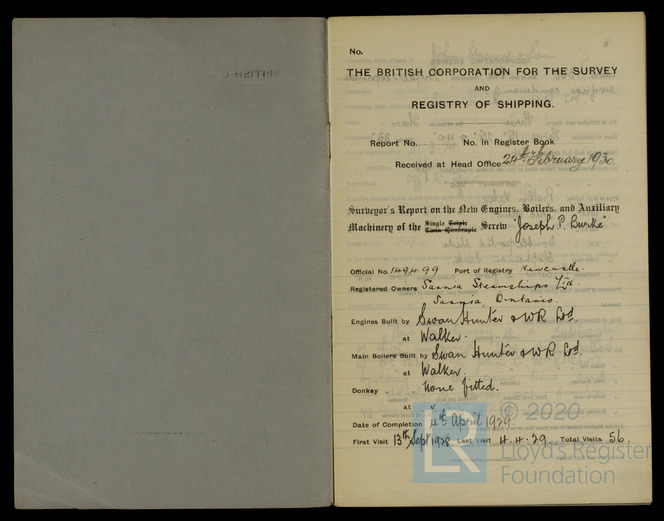 No.
THE BRITISH CORPORATION FOR THE SURVEY
AND
REGISTRY OF SHIPPING.
Report No. No. in Register Book
Received at Head Office 24th February 1930.
Surveyor's Report on the New Engines, Boilers, and Auxiliary
Single Triple
Machinery of the Twin Quadruple Screw "Joseph P. Burke"
Official No. 149499 Port of Registry Newcastle.
Registered Owners Sarnia Steamships Ltd.
Sarnia, Ontario.
Engines Built by Swan Hunter & WR Ltd.
at Walker.
Main Boilers Built by Swan Hunter & WR Ltd.
at Walker.
Donkey " " None fitted.
at
Date of Completion 4th April 1929.
First Visit 13th Sept 1928 Last Visit 4.4.29. Total Visits 56.
LR © 2020
Lloyd's Register
Foundation